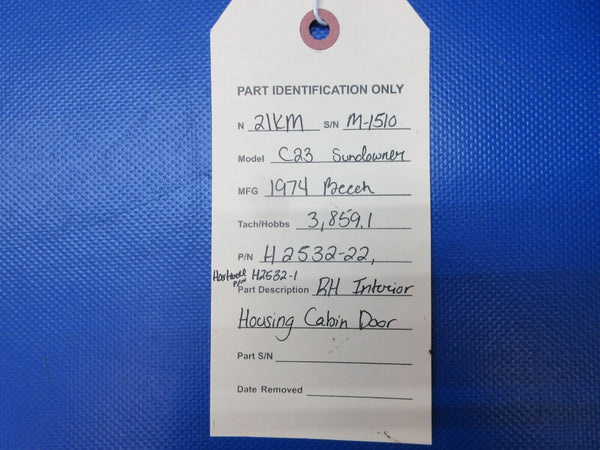 PART IDENTIFICATION ONLY
N 21KM S/N M-1510
Model C23 Sundowner
MFG 1974 Beech
Tach/Hobbs 3,859.1
P/N H2532-22,
Hartwell P/N H2532-1
Part Description RH Interior
Housing Cabin Door
Part S/N
Date Removed